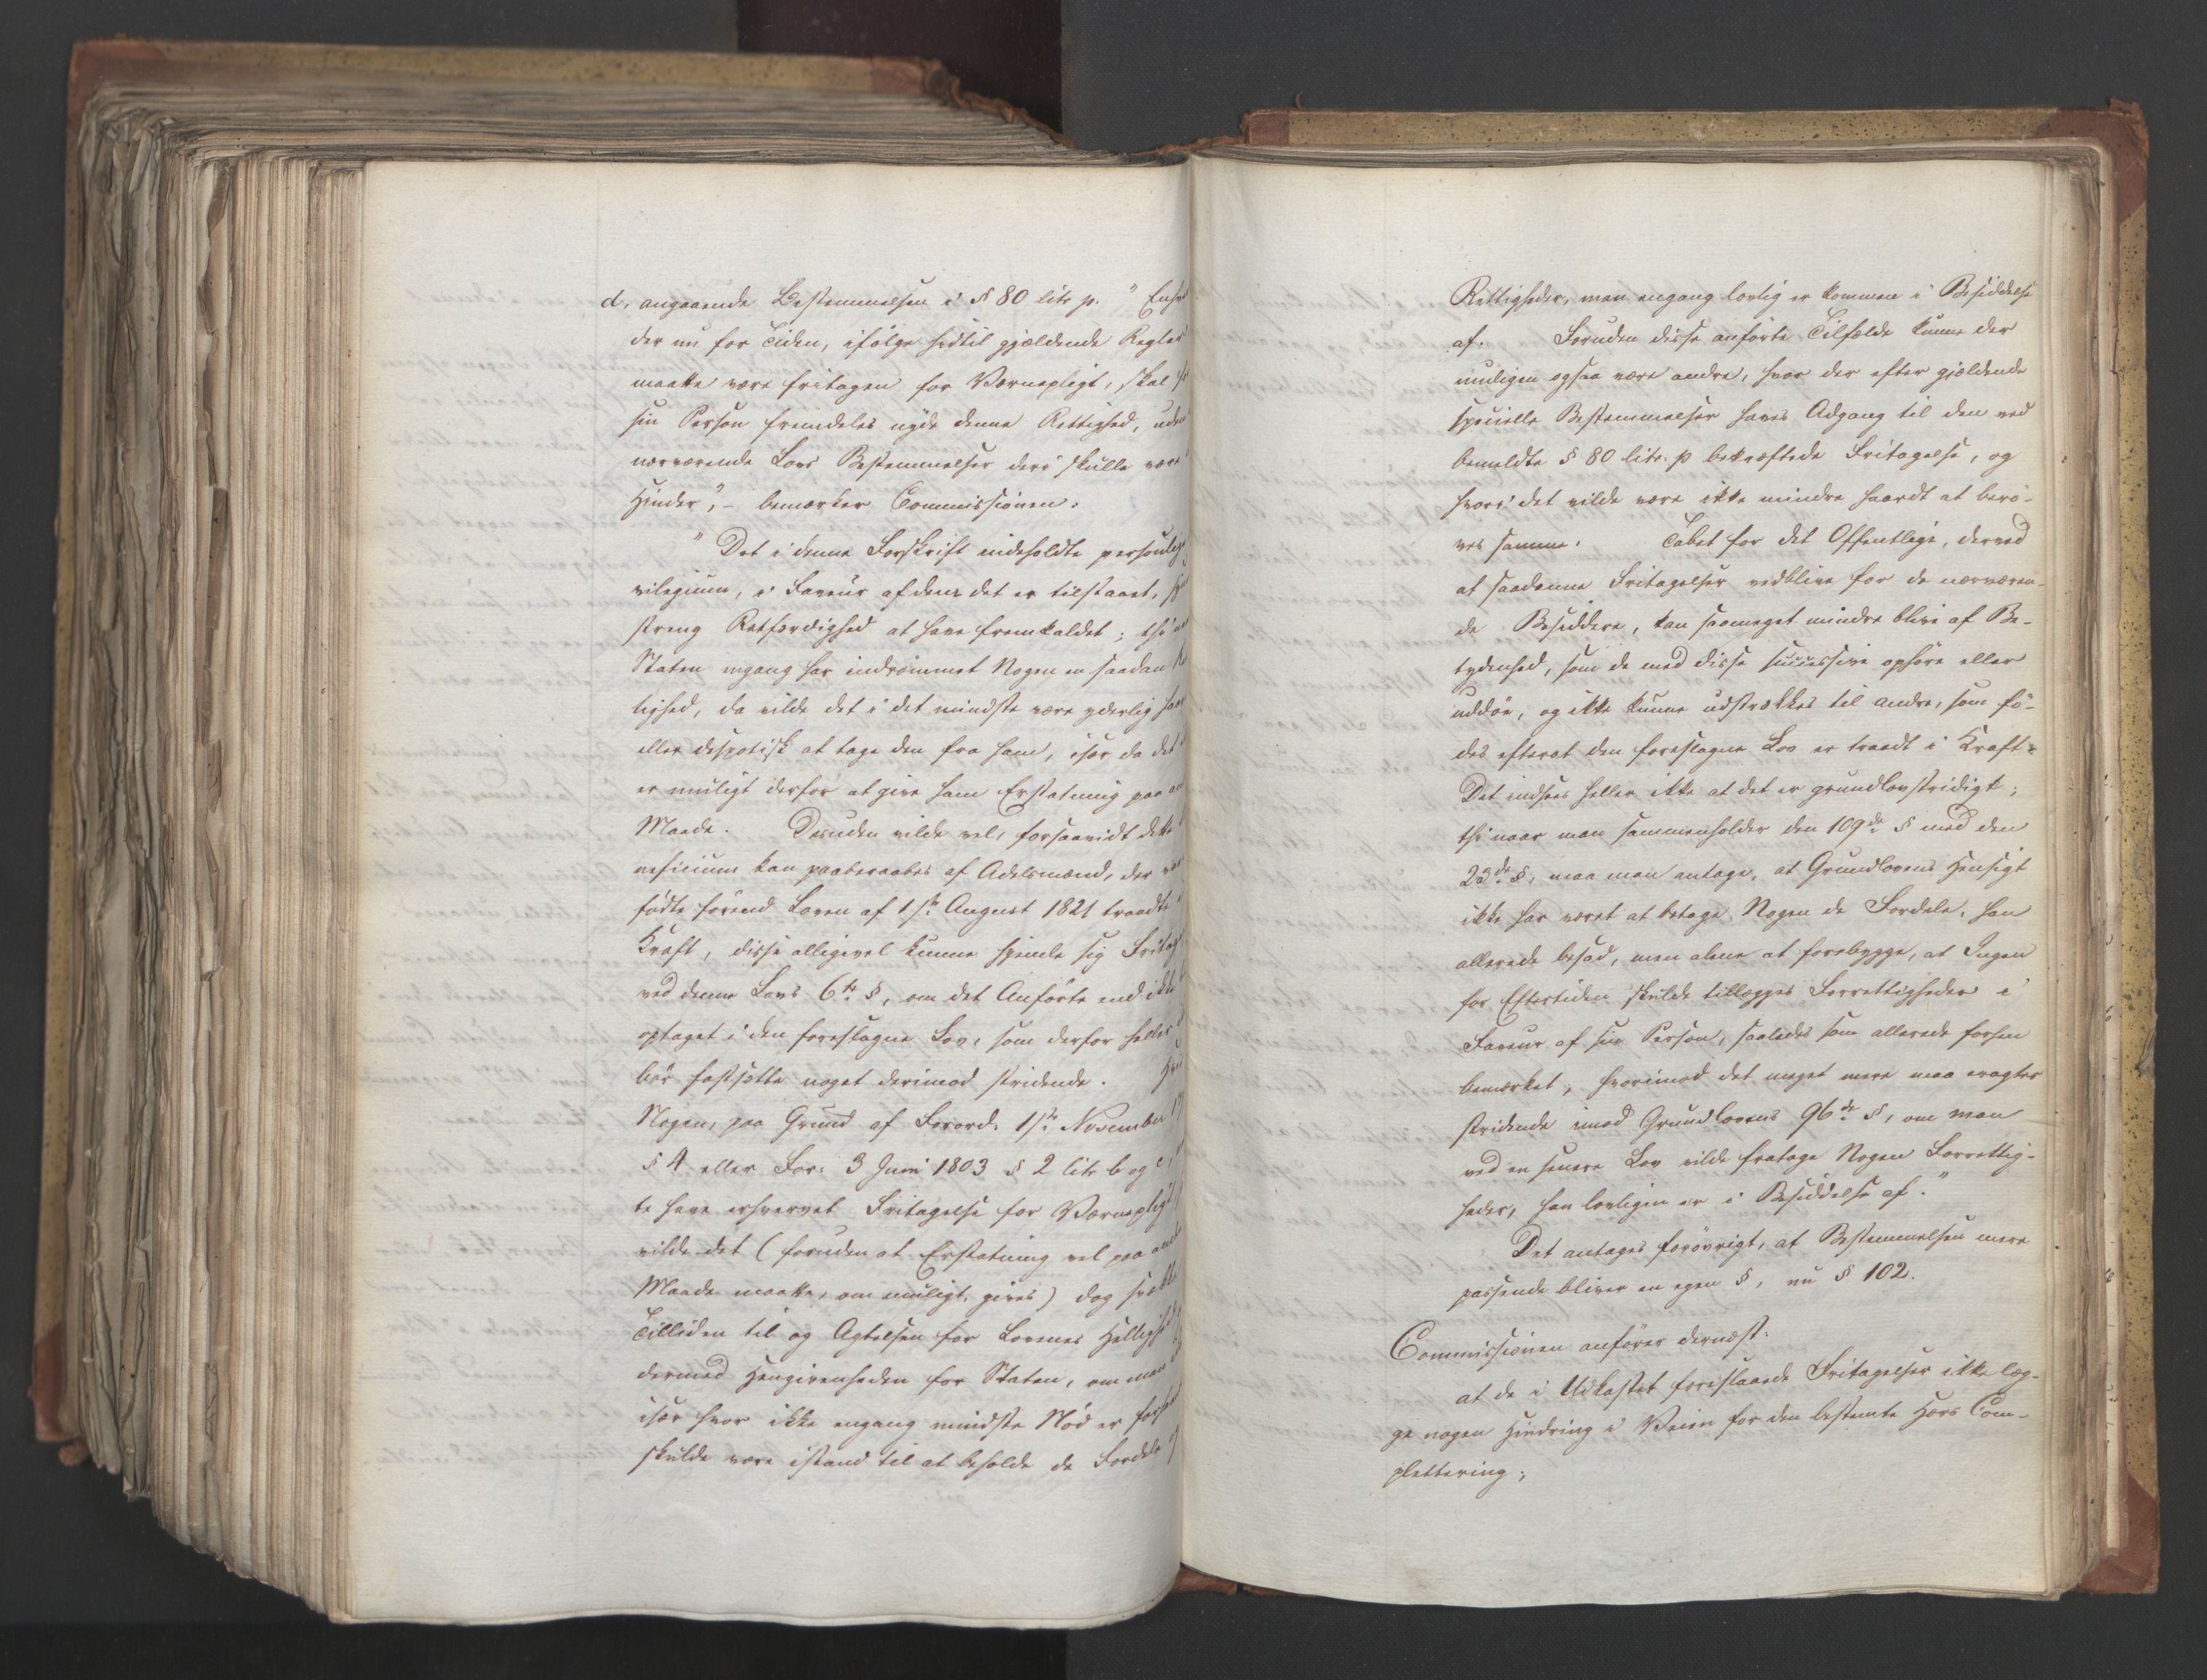 d, angaaende Bestemmelsen i § 80 litr p. "Enhv
der nu for Tiden, ifølge hidtil gjældende Regler
maatte være fritagen for Værnepligt, skal for
sin Person fremdeles nyde denne Rettighed, uden
nærværende Lovs Bestemmelser deri skulle være
Hinder", - bemærker Commissionen:
"Det i denne Forskrift indeholdte personlige
vilegium, i Faveur af dem det er tilstaaet,
streng Retfærdighed at have fremkaldet; thi naar
Staten engang har indrømmet Nogen en saadan Ret
tighed, da vilde det i det mindste være yderlig haar
eller despotisk at tage den fra ham, især da det
er muligt derfor at give ham Erstatning paa an
Maade. Desuden vilde vel, forsaavidt dette
neficium kan paaberaabes af Adelsmænd, der var
fødte førend Loven af 1ste August 1821 traadte i
Kraft, disse alligevel kunne hjemle sig Fritag
ved denne Lovs 6te §, om det Anførte end ikke
optaget i den foreslagne Lov, som derfor heller
bør fastsætte noget derimod stridende. Hvis
Nogen, paa Grund af Forord. 1ste November 17
§ 4 eller For: 3 Juni 1803 § 2 litr b og c,
te have erhvervet Fritagelse for Værnepligt
vilde det (foruden at Erstatning vel paa anden
Maade maatte, om muligt, gives) dog svække
Tilliden til og Agtelsen for Lovenes Hellighed
dermed Hengivenheden for Staten, om man
især hvor ikke engang mindste Nød er forhaan
skulde være istand til at beholde de Fordele
Rettigheder, man engang lovlig er kommen i Besiddelse
af. Foruden disse anførte Tilfælde kunne der
muligen ogsaa være andre, hvor der efter gjældende
specielle Bestemmelser haves Adgang til den ved
bemeldte § 80 litr. p bekræftede Fritagelse, og
hvori det vilde være ikke mindre haardt at berø-
ves samme. Tabet for det Offentlige, derved
at saadanne Fritagelser vedblive for de nærværen-
de Besiddere, kan saameget mindre blive af Be-
tydenhed, som de med disse successive ophøre eller
uddøe, og ikke kunne udstrækkes til andre, som fø-
des efterat den foreslagne Lov er traadt i Kraft.
Det indsees heller ikke at det er grundlovstridigt;
thi naar man sammenholder den 109de § med den
23de §, maa man antage, at Grundlovens Hensigt
ikke har været at betage Nogen de Fordele, han
allerede besad, men alene at forebygge, at Ingen
for Eftertiden skulde tillægges Forrettigheder i
Faveur af sin Person, saaledes som allerede forhen
bemærket; hvorimod det meget mere maa eragtes
stridende imod Grundlovens 96de §, om man
ved en senere Lov vilde fratage Nogen Forrettig-
heder, han lovligen er i Besiddelse af."
Det antages forøvrigt, at Bestemmelsen mere
passende bliver en egen §, nu § 102.
Commissionen anfører dernæst:
at de i Udkastet foreslaaede Fritagelser ikke læg-
ge nogen Hindring i Veien for den bestemte Hærs Com-
plettering;